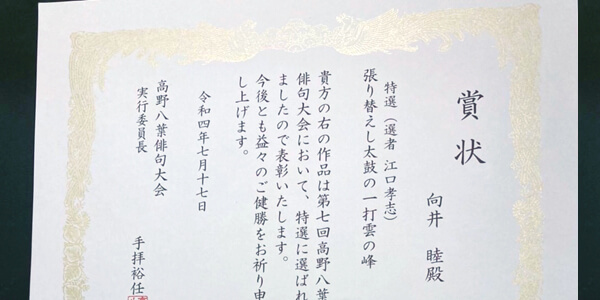 賞状
向井 睦殿
特選（選者 江口孝志）
張り替えし太鼓の一打雲の峰
貴方の右の作品は第七回高野八葉
俳句大会において、特選に選ばれ
ましたので表彰いたします。
今後とも益々のご健勝をお祈り申
し上げます。
令和四年七月十七日
高野八葉俳句大会
実行委員長
手拝裕任